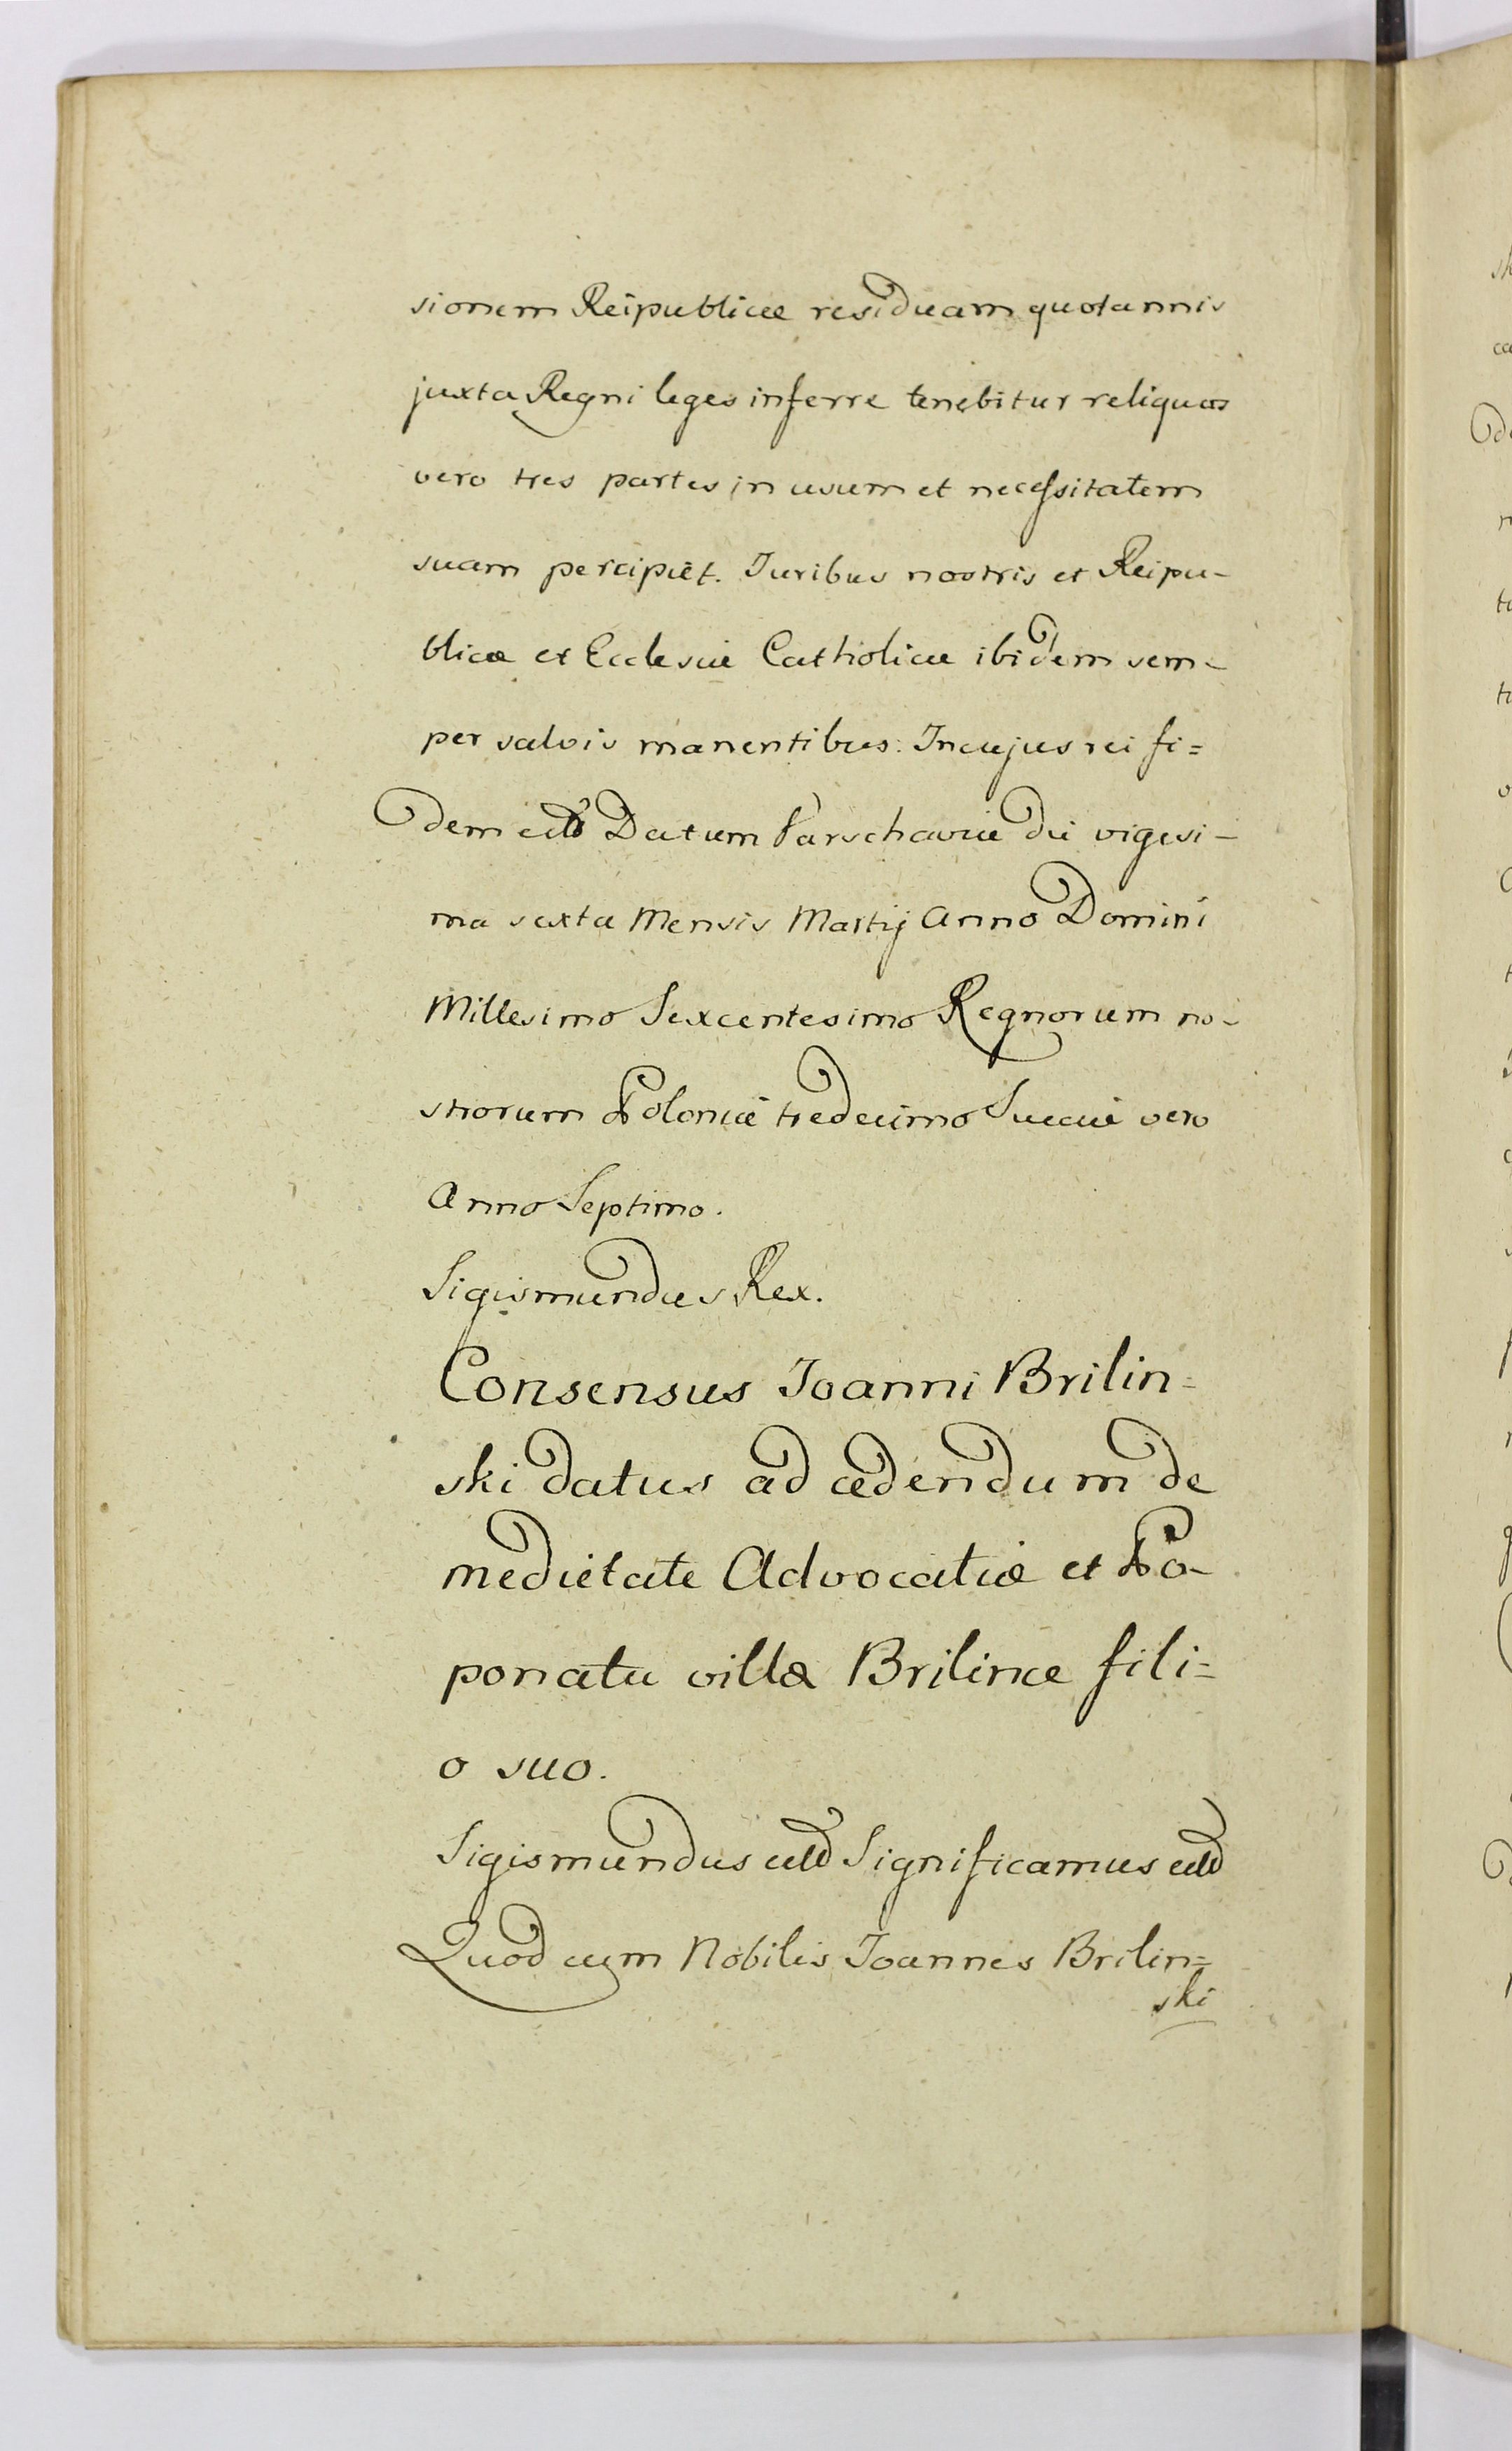 sionem Reipublicæ residuam quotannis
juxta Regni leges inferre tenebitur reliquas
vero tres partes in usum et necessitatem
suam percipiet. Juribus nostris et Reipu-
blicæ et Ecclesiæ Catholicæ ibidem sem-
per salvis manentibus. In cujus rei fi=
dem etc Datum Varschaviæ die vigesi-
ma sexta Mensis Martij Anno Domini
Millesimo Sexcentesimo Regnorum no-
strorum Poloniæ tredecimo Sueciæ vero
Anno Septimo.
Sigismundus Rex.
Consensus Joanni Brilin=
ski datus ad cedendum de
medietate Advocatiæ et Po-
ponatu villæ Brilince fili=
o suo.
Sigismundus etc Significamus etc
Quod cum Nobilis Joannes Brilin=
ski